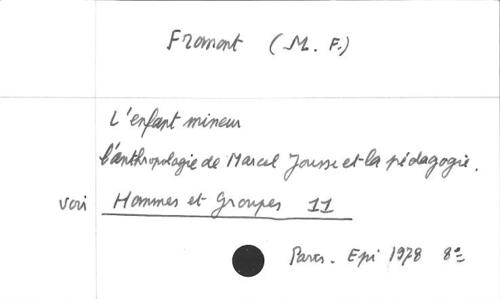 Fromont (M. F.)
L'enfant mineur
l'anthropologie de Marcel Jousse et la pédagogie.
voir Hommes et Groupes 11
Paris. Epi 1978 8º